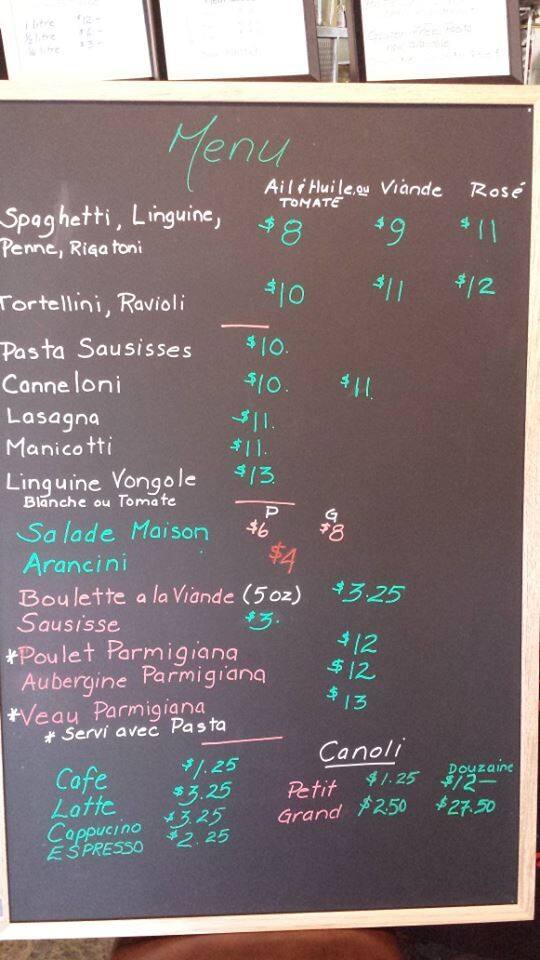 1 litre $12-
½ litre $6-
¼ litre $3-
Menu
Ail & Huile, ou Viande Rosé
TOMATE
Spaghetti, Linguine, $8 $9 $11
Penne, Rigatoni
Tortellini, Ravioli $10 $11 $12
Pasta Sausisses $10.
Canneloni $10. $11.
Lasagna $11.
Manicotti $11.
Linguine Vongole $13.
Blanche ou Tomate
P G
Salade Maison $6 $8
Arancini $4
Boulette a la Viande (5oz) $3.25
Sausisse $3.
*Poulet Parmigiana $12
Aubergine Parmigiana $12
*Veau Parmigiana $13
* Servi avec Pasta
Cafe $1.25
Latte $3.25
Cappucino $3.25
ESPRESSO $2.25
Canoli
Douzaine
Petit $1.25 $12—
Grand $2.50 $27.50